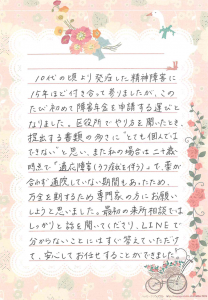 10代の頃より発症した精神障害に
15年ほど付き合って参りましたが、この
たび初めて障害年金を申請する運びと
なりました。区役所でやり方を聞いたとき、
提出する書類の多さに"とても個人では
できない"と思い、また私の場合は二十歳
時点で"適応障害(うつ症状を伴う)"で、薬が
合わず通院していない期間もあったため、
万全を期するため専門家の方にお願い
しようと思いました。最初の来所相談では
しっかりと話を聞いてくださり、LINEで
分からないことにはすぐ答えていただけ
て、安心してお任せすることができました。